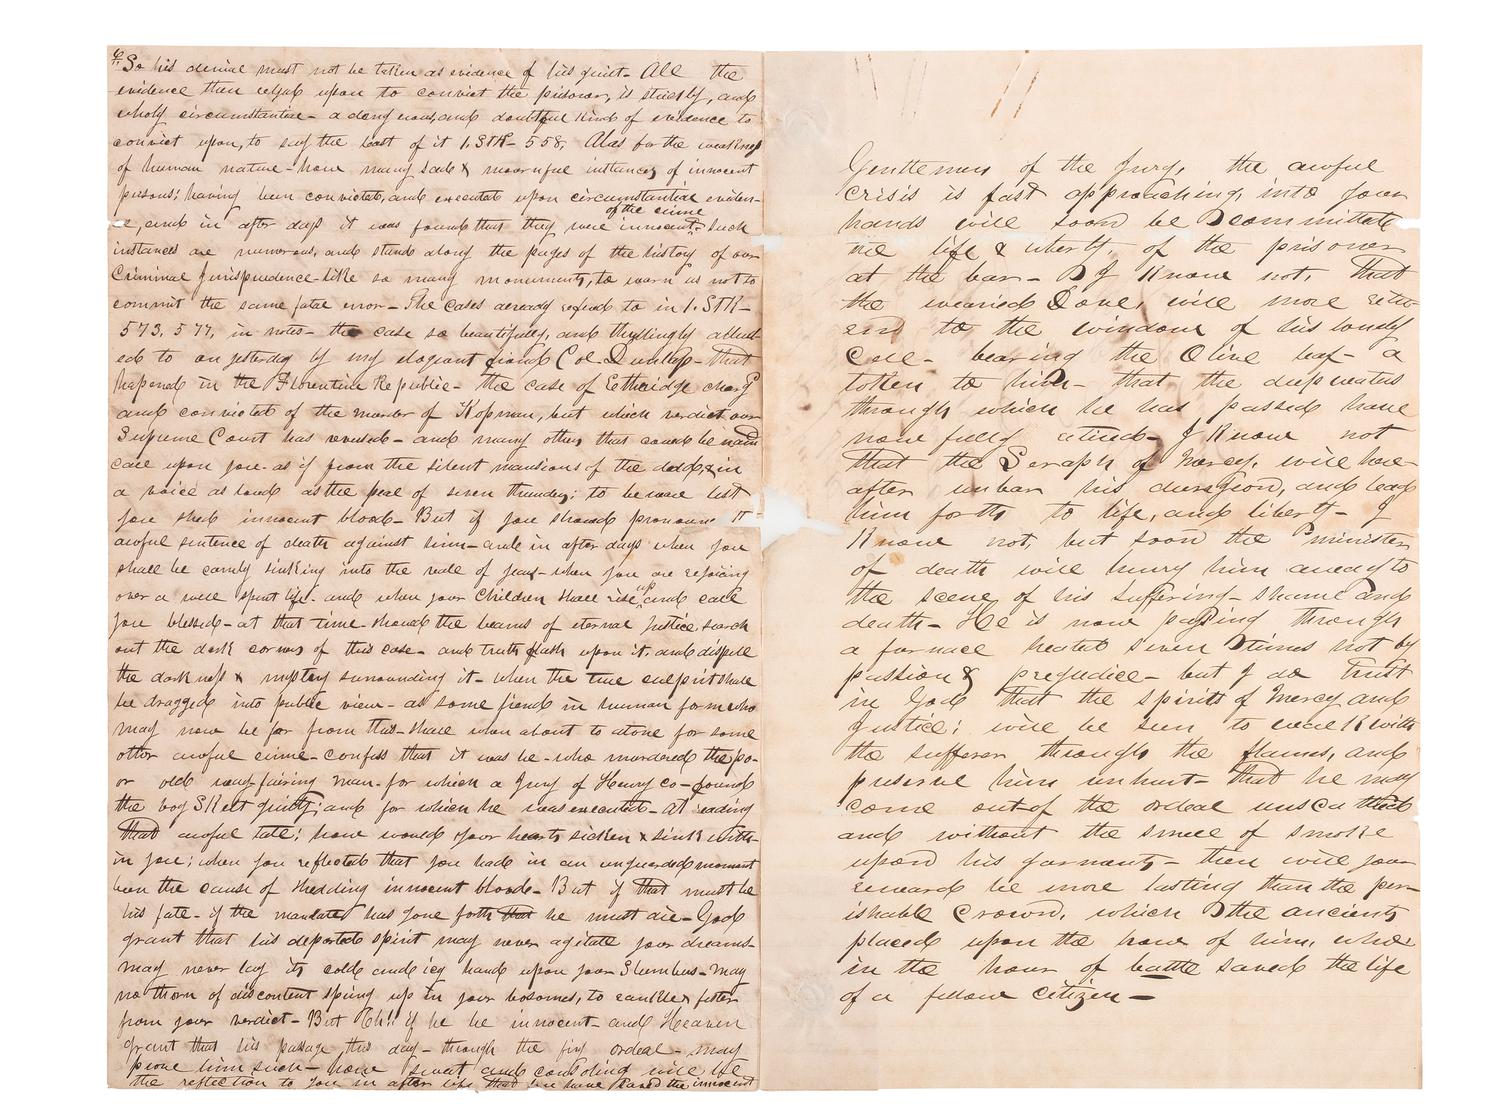 So his denial must not be taken as evidence of his guilt- All the
evidence then relyed upon to convict the prisoner, is strictly, and
wholy circumstantial- a dangerous, and doubtful kind of evidence to
convict upon, to say the least of it 1. STK- 558, Alas for the weakness
of human nature- how many sad & mournful instances of innocent
persons; having been convicted, and executed upon circumstantial eviden-
ce, and in after days it was found that they were innocent of the crime- Such
instances are numerous, and stand along the pages of the history of our
Criminal Jurisprudence- like so many monuments, to warn us not to
commit the same fatal error- The cases already refered to in 1. STK-
573, 577, in notes- the case so beautifully, and thrillingly allud-
ed to on yesterday by my elogant friend Col- Dunlap- that
hapened in the Florentine Republic- the case of Ethridge charg
and convicted of the murder of Kopman, but which verdict our
Supreme Court has reversed- and many others that could be name
call upon you- as if from the silent mansions of the dead, & in
a voice as loud as the peal of seven thunders; to beware lest
you shed innocent blood- But if you should pronounce
awful sentence of death against him- and in after days when you
shall be calmly sinking into the vale of years- when you are rejoicing
over a well spent life- and when your Children shall rise up, and call
you blessed- at that time should the beams of eternal Justice search
out the dark corners of this case- and truth flash upon it, and dispell
the darkness & mystery surrounding it- when the true culprit shall
be dragged into public view- as some fiend in human form who
may now be far from this- shall when about to atone for some
other awful crime- confess that it was he- who murdered the po-
or old wayfairing man- for which a Jury of Henry co- found
the boy Skeet guilty; and for which he was executed- At reading
that awful tale; how would your hearts sicken & sink with-
in you; when you reflected that you had in an unguarded moment
been the cause of shedding innocent blood- But if that must be
his fate- if the mandate has gone forth that he must die- God
grant that his departed spirit may never agitate your dreams-
may never lay its cold and icy hand upon your Slumbers- May
no thorn of discontent spring up in your bosoms, to rankle & fester
from your verdict- But Oh!! if he be innocent- and Heaven
grant that his passage this day- through the firy ordeal- may
prove him such- how sweet and consoling will be
the reflection to you in after life that you have saved the innocent
Gentlemen of the Jury, the awful
crisis is fast approaching, into your
hands will soon be committed
the life & liberty of the prisoner
at the bar- I Know not, that
the wearied Dove, will more retur-
end to the window of his lonely
Cell- bearing the Olive leaf- a
token to him- that the deep waters
through which he has passed have
now fully retired- I Know not
that the Seraph of Mercy, will here-
after unbar his dungeon, and lead
him forth to life, and liberty- I
Know not, but soon the minister
of death will hurry him away to
the scene of his suffering- shame and
death- He is now passing through
a furnace heated seven times not by
passion & prejudice- but I do trust
in God that the spirits of Mercy and
Justice; will be seen to walk with
the sufferer through the flames, and
preserve him unhurt- that he may
come out of the ordeal unscathed
and without the smell of smoke
upon his garments- then will your
reward be more lasting than the per-
ishable Crown, which the ancients
placed upon the brow of him, who
in the hour of battle saved the life
of a fellow citizen-